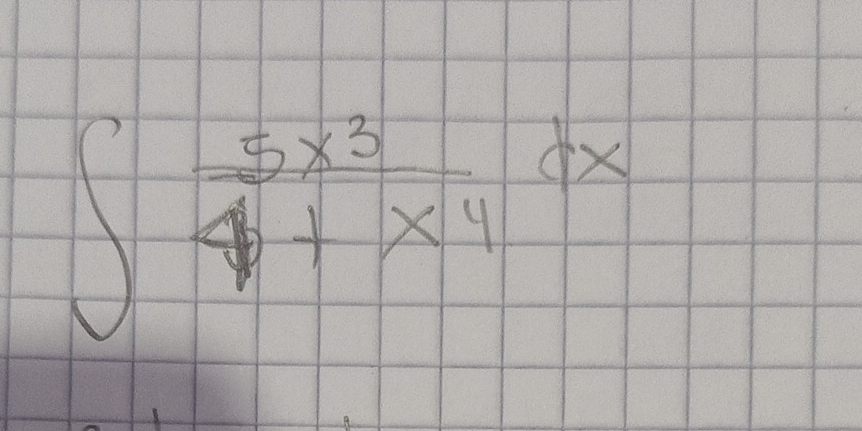 ∫ 5x³ / 4 + x⁴ dx